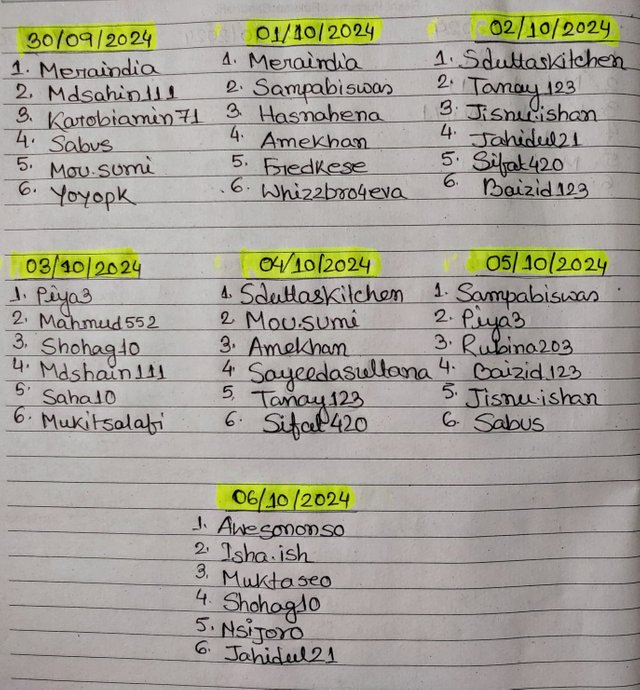 30/09/2024
1. Meraindia
2. Mdsahin111
3. Karobiamin71
4. Sabus
5. Mou.sumi
6. Yoyopk
01/10/2024
1. Meraindia
2. Sampabiswas
3. Hasnahena
4. Amekhan
5. Fredkese
6. Whizzbro4eva
02/10/2024
1. Sduttaskitchen
2. Tanay123
3. Jisnu.ishan
4. Jahidul21
5. Sifat420
6. Baizid123
03/10/2024
1. Piya3
2. Mahmud552
3. Shohag10
4. Mdshain111
5. Saha10
6. Mukitsalafi
04/10/2024
1. Sduttaskitchen
2. Mou.sumi
3. Amekhan
4. Sayeedasultana
5. Tanay123
6. Sifat420
05/10/2024
1. Sampabiswas
2. Piya3
3. Rubina203
4. Baizid123
5. Jisnu.ishan
6. Sabus
06/10/2024
1. Awesononso
2. Isha.ish
3. Muktaseo
4. Shohag10
5. Nsijoro
6. Jahidul21